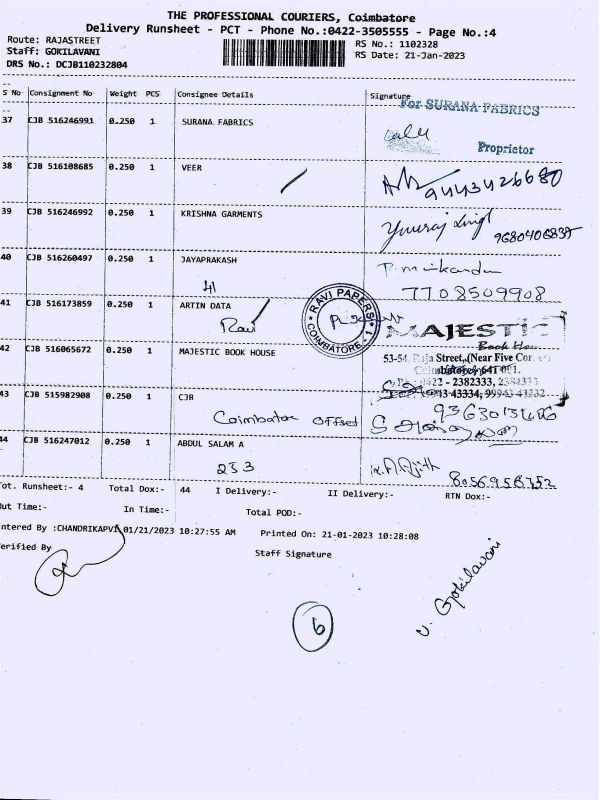 THE PROFESSIONAL COURIERS, Coimbatore
Delivery Runsheet - PCT - Phone No.:0422-3505555 - Page No.:4
Route: RAJASTREET
RS No.: 1102328
Staff: GOKILAVANI
RS Date: 21-Jan-2023
DRS No.: DCJB110232804
S No Consignment No Weight PCS Consignee Details Signature
For SURANA FABRICS
37 CJB 516246991 0.250 1 SURANA FABRICS
Proprietor
38 CJB 516108685 0.250 1 VEER
9443426680
39 CJB 516246992 0.250 1 KRISHNA GARMENTS
9680406835
40 CJB 516260497 0.250 1 JAYAPRAKASH
41
7708509908
41 CJB 516173859 0.250 1 ARTIN DATA
Ravi
RAVI PAPERS
COIMBATORE - 1
MAJESTIC
Book
42 CJB 516065672 0.250 1 MAJESTIC BOOK HOUSE
53-54, Raja Street, (Near Five Cor
Coimbatore - 641 001.
0422 - 2382333,
43334, 99943 43332
43 CJB 515982908 0.250 1 CJB
Coimbatore offset
44 CJB 516247012 0.250 1 ABDUL SALAM A
233
8056958752
Tot. Runsheet:- 4 Total Dox:- 44 I Delivery:- II Delivery:- RTN Dox:-
Out Time:- In Time:- Total POD:-
Entered By :CHANDRIKAPV1,01/21/2023 10:27:55 AM Printed On: 21-01-2023 10:28:08
Verified By
Staff Signature
V. Gokilavani
6